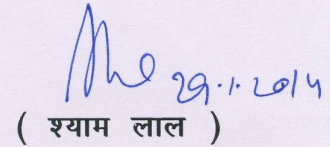 29.1.2014
( श्याम लाल )